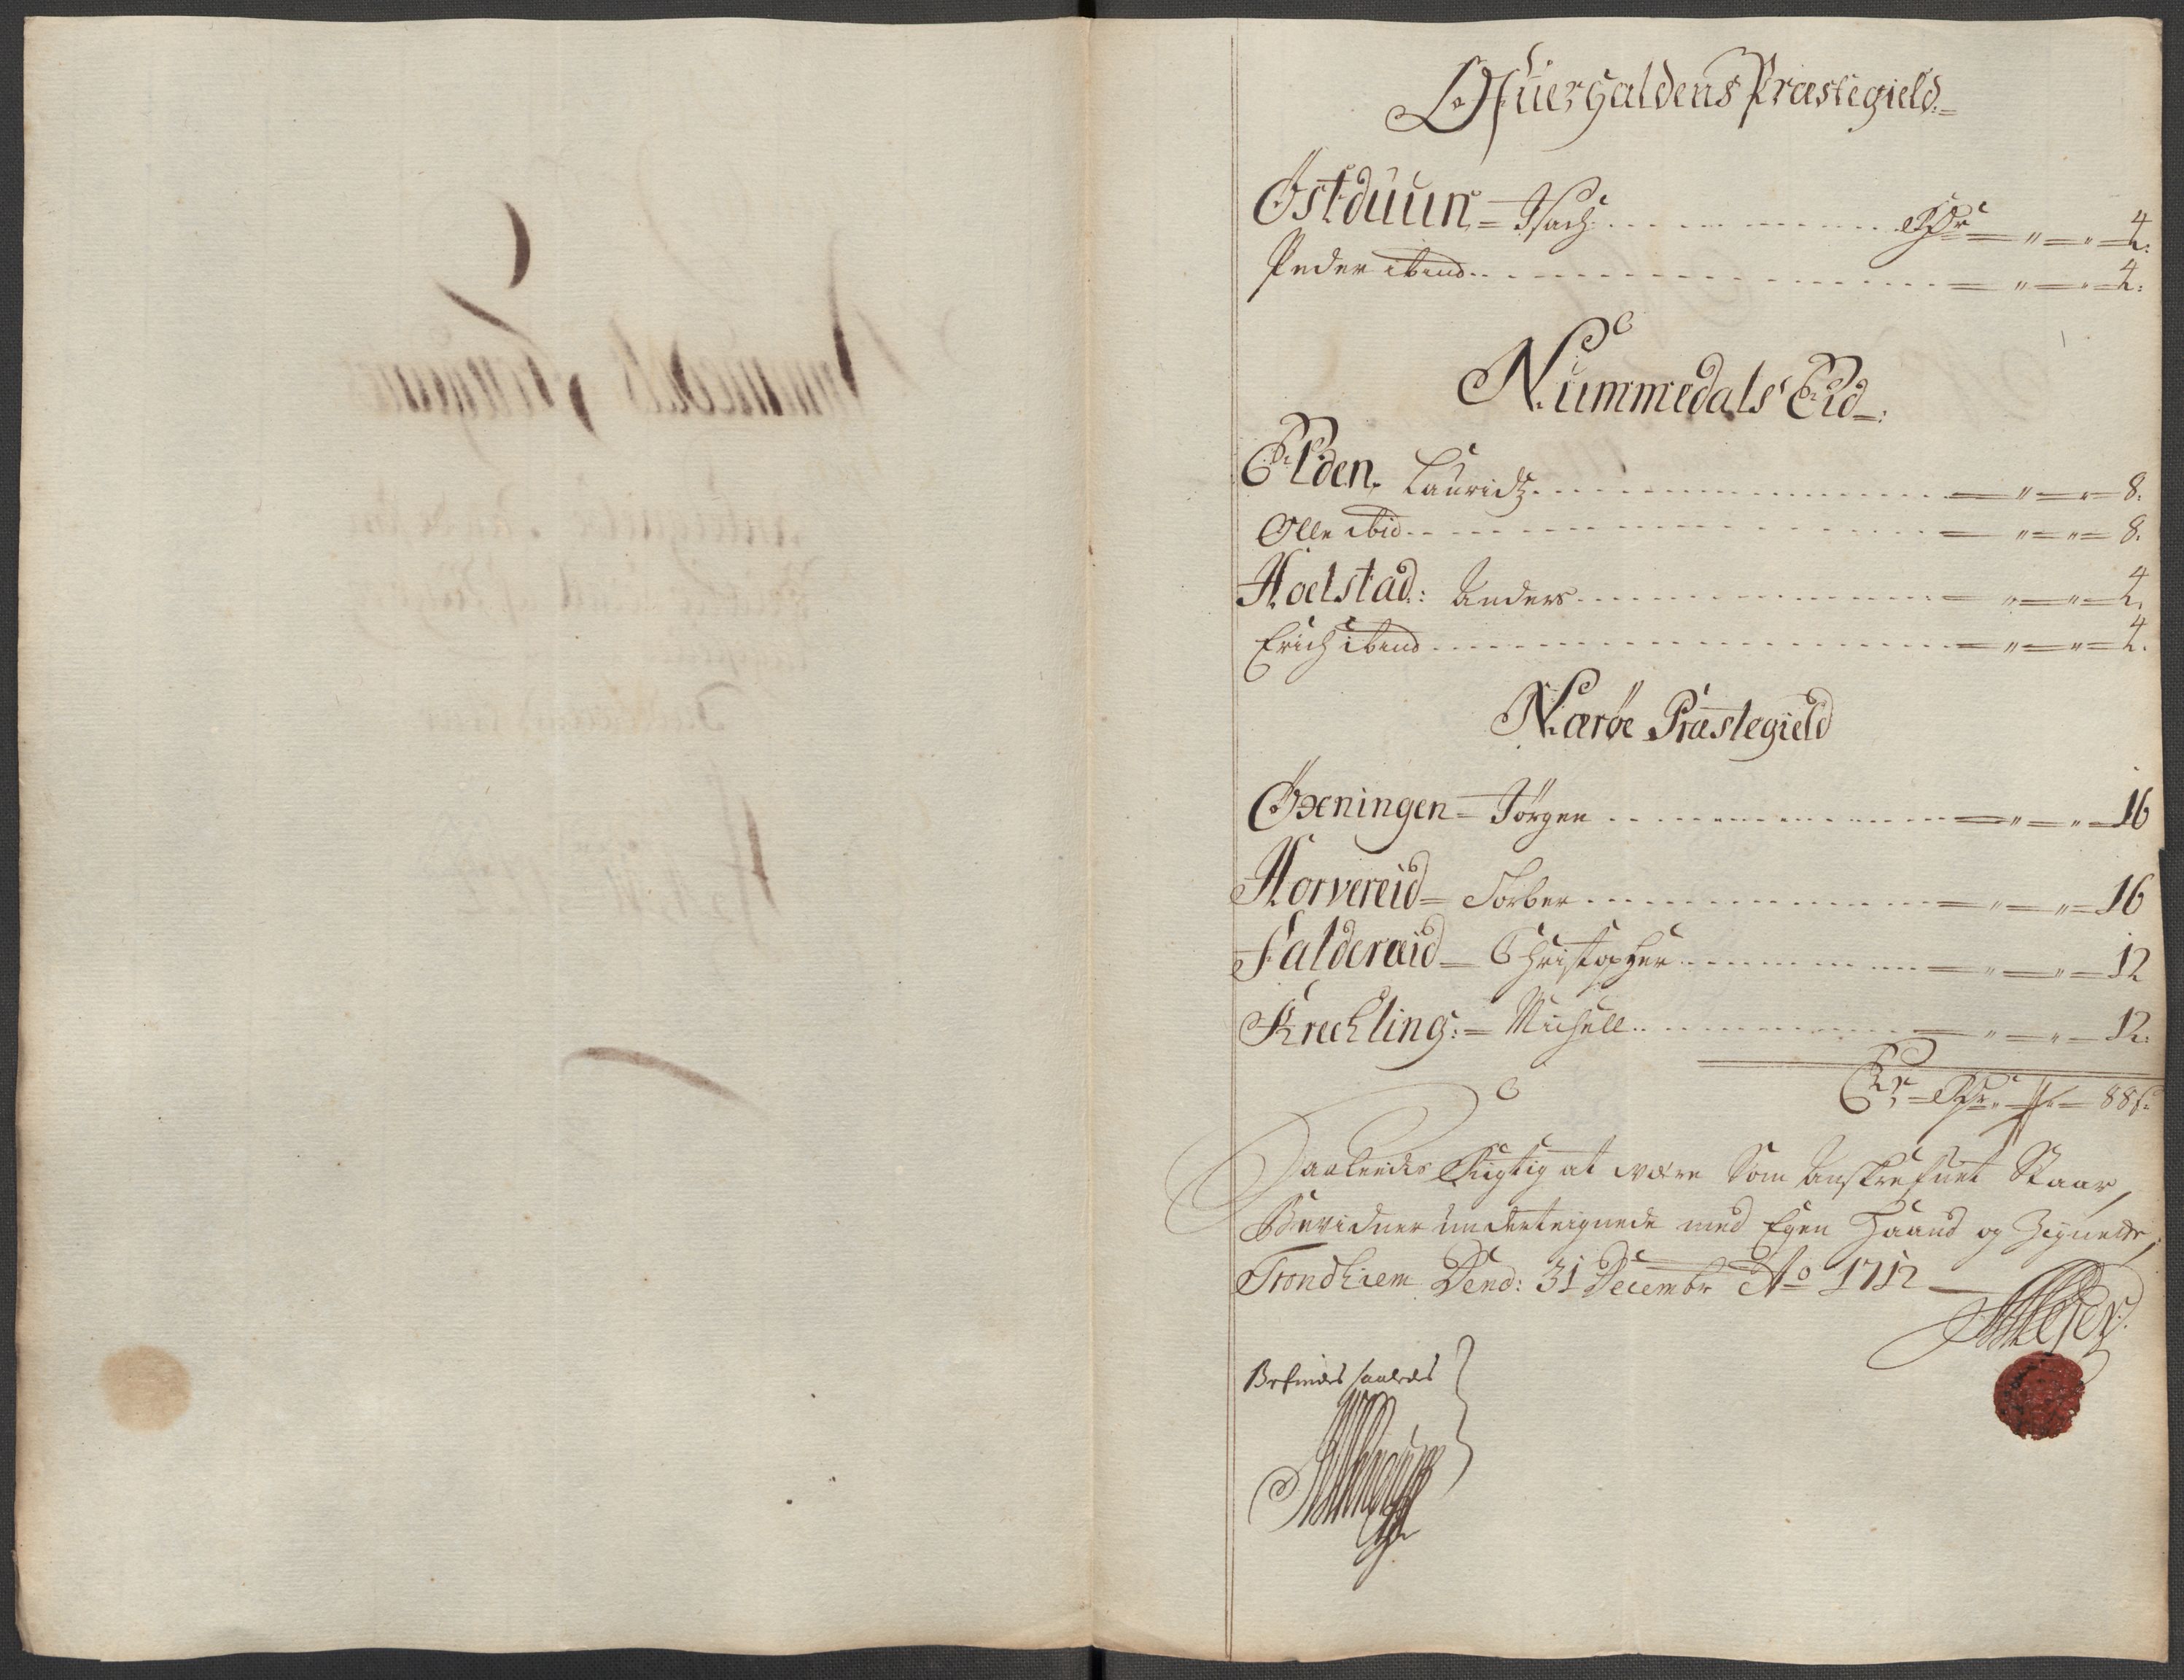 Ofuerhaldens Præstegield
Østduun = Isach 4.
Peder ibend 4.
Nummedals Eid
Elden Lauridz 8.
Olle ibid 8.
Hoelstad: Anders 4.
Erich ibend 4.
Nærøe Præstegield
Øxeningen = Jørgen 16
Horvereid = Torber 16
Falderæid Christopher 12
Krechling: = Michell 12.
Er 88 s
Saaleedes Rigtig at være Som Anskrefuet Staar,
Bevidner underteignede med Egen Haand og Zignette,
Trondhiem Dend: 31 Decembr Ao 1712
Befindes saaledes